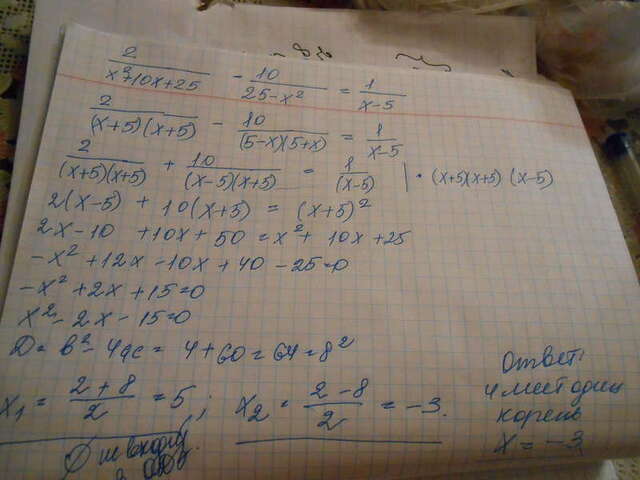 2/(x²+10x+25) - 10/(25-x²) = 1/(x-5)
2/((x+5)(x+5)) - 10/((5-x)(5+x)) = 1/(x-5)
2/((x+5)(x+5)) + 10/((x-5)(x+5)) = 1/(x-5) | · (x+5)(x+5)(x-5)
2(x-5) + 10(x+5) = (x+5)²
2x-10 +10x+50 = x²+ 10x+25
-x²+12x-10x+40-25=0
-x²+2x+15=0
x²-2x-15=0
D = b²-4ac = 4+60=64=8²
x₁ = (2+8)/2 = 5 ; x₂ = (2-8)/2 = -3.
не входит
в ОДЗ.
Ответ:
имеет один
корень
x = -3